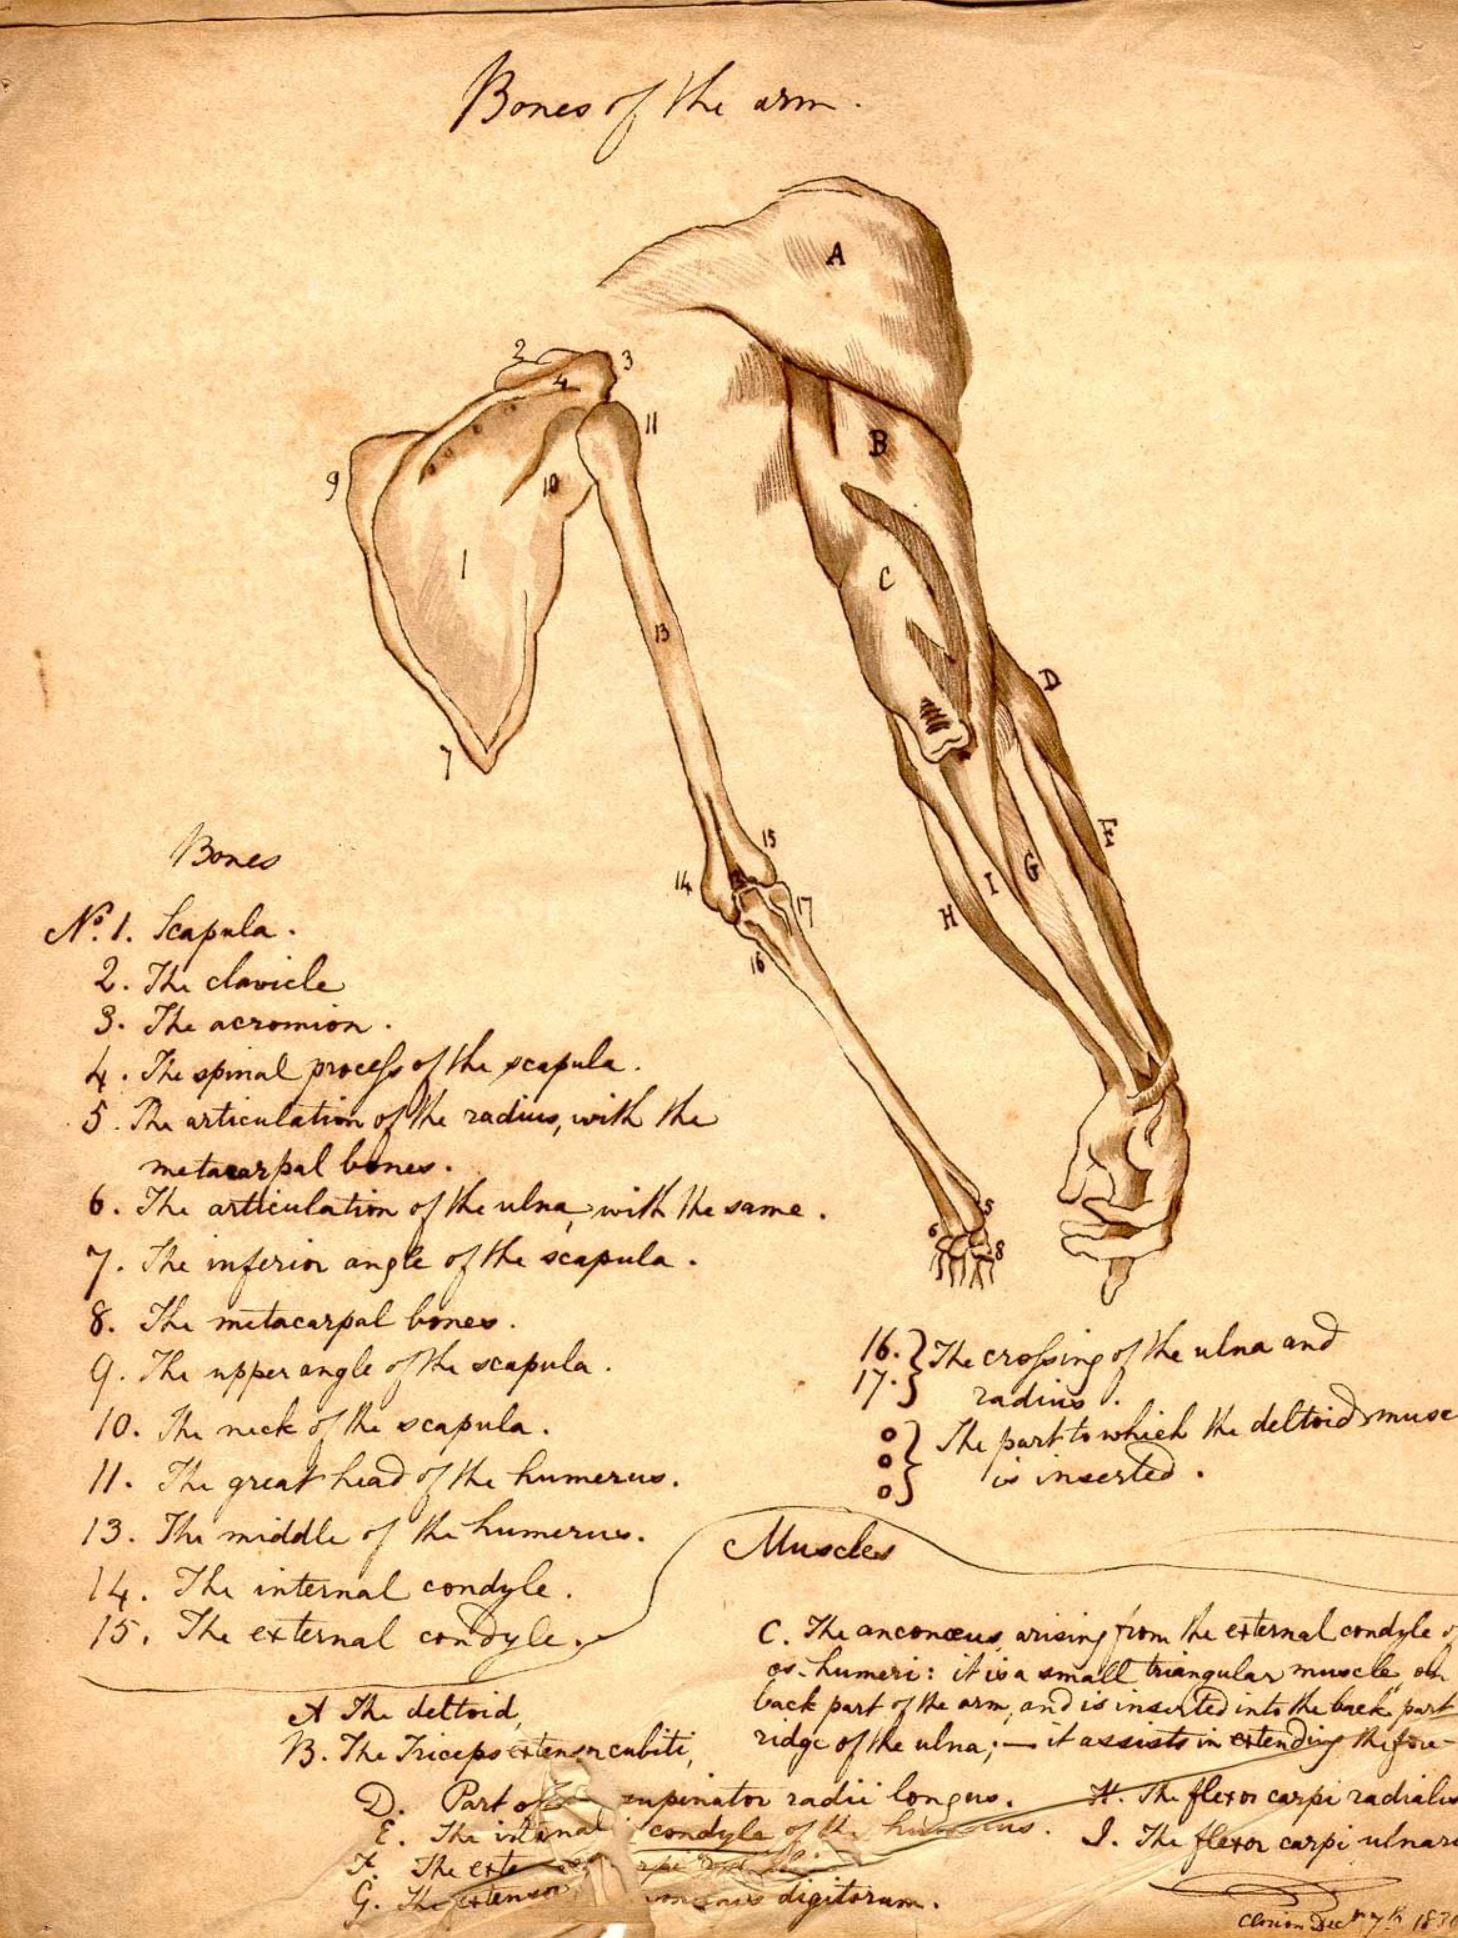 Bones of the arm.
A
2
3
4
B
11
9
10
C
1
13
D
7
15
E
14
G
I
17
H
16
5
6
8
Bones
No. 1. Scapula.
2. The clavicle
3. The acromion.
4. The spinal process of the scapula.
5. The articulation of the radius, with the
metacarpal bones.
6. The articulation of the ulna, with the same.
7. The inferior angle of the scapula.
8. The metacarpal bones.
9. The upper angle of the scapula.
10. The neck of the scapula.
11. The great head of the humerus.
13. The middle of the humerus.
14. The internal condyle.
15. The external condyle.
16. } The crossing of the ulna and
17. } radius.
o } The part to which the deltoid musc
o } is inserted.
o }
Muscles
A The deltoid,
B. The Triceps extensor cubiti,
C. The anconæus, arising from the external condyle
os-humeri: it is a small triangular muscle, on
back part of the arm, and is inserted into the back part
ridge of the ulna; — it assists in extending the fore-
D. Part of supinator radii longus.
E. The internal condyle of the humerus.
F. The exte
G. The extensor digitorum.
H. The flexor carpi radialis
I. The flexor carpi ulnar
Dec